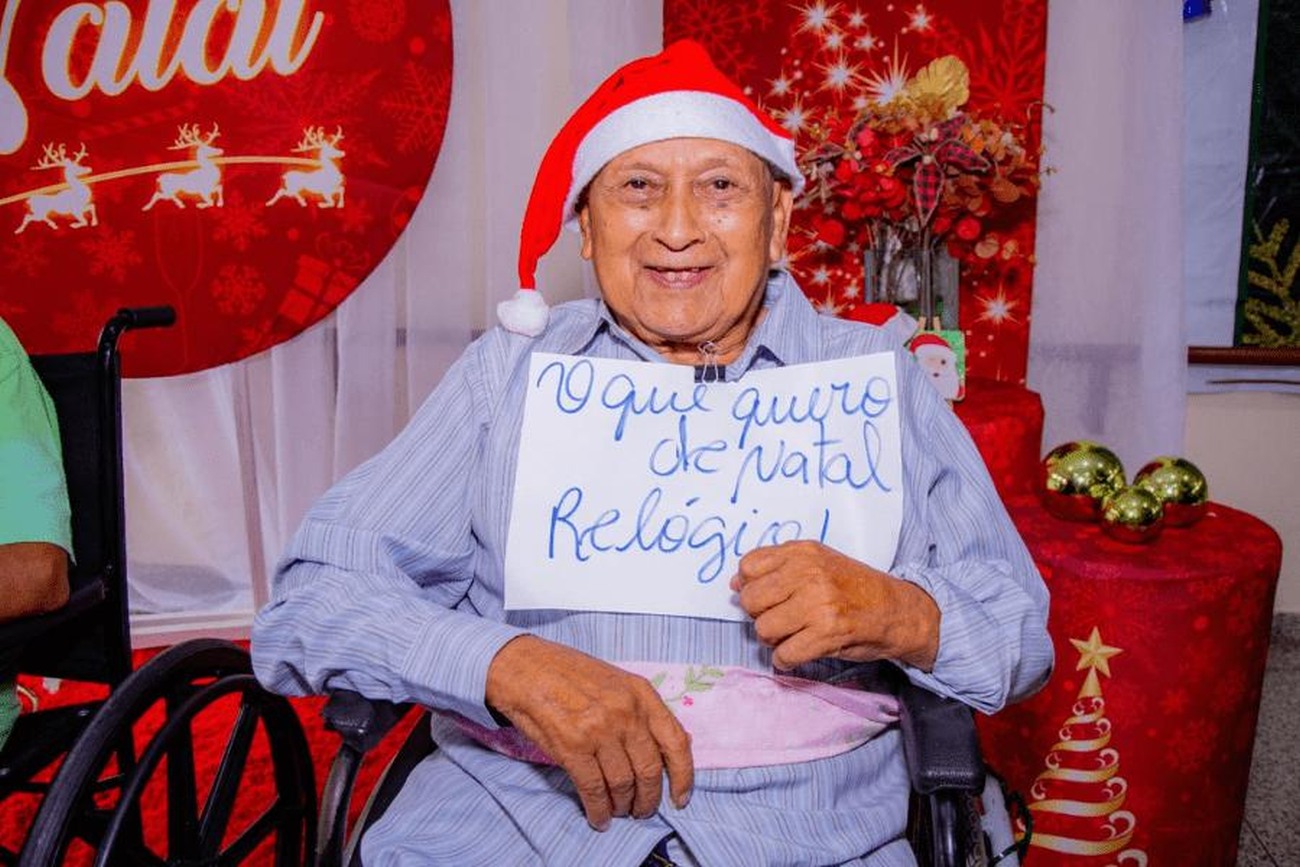 Natal
O que quero
de Natal
Relógio!